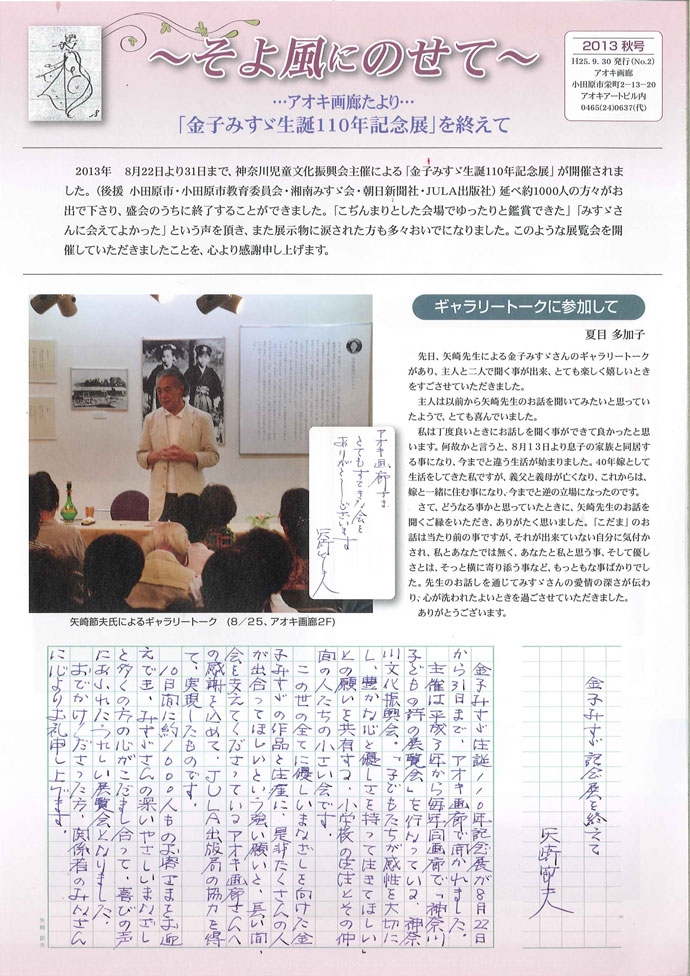 ～そよ風にのせて～
…アオキ画廊たより…
「金子みすゞ生誕110年記念展」を終えて
2013 秋号
H25. 9. 30 発行(No.2)
アオキ画廊
小田原市栄町2−13−20
アオキアートビル内
0465(24)0637(代)
2013年　8月22日より31日まで、神奈川児童文化振興会主催による「金子みすゞ生誕110年記念展」が開催されま
した。（後援 小田原市・小田原市教育委員会・湘南みすゞ会・朝日新聞社・JULA出版社）延べ約1000人の方々がお
出で下さり、盛会のうちに終了することができました。「こぢんまりとした会場でゆったりと鑑賞できた」「みすゞさ
んに会えてよかった」という声を頂き、また展示物に涙された方も多々おいでになりました。このような展覧会を開
催していただきましたことを、心より感謝申し上げます。
アオキ画廊さま
とてもすてきな会を
ありがとうございます
矢崎節夫
矢崎節夫氏によるギャラリートーク　(8／25、アオキ画廊2F)
ギャラリートークに参加して
夏目 多加子
先日、矢崎先生による金子みすゞさんのギャラリートーク
があり、主人と二人で聞く事が出来、とても楽しく嬉しいとき
をすごさせていただきました。
主人は以前から矢崎先生のお話を聞いてみたいと思ってい
たようで、とても喜んでいました。
私は丁度良いときにお話しを聞く事ができて良かったと思
います。何故かと言うと、8月13日より息子の家族と同居す
る事になり、今までと違う生活が始まりました。40年嫁として
生活をしてきた私ですが、義父と義母が亡くなり、これからは、
嫁と一緒に住む事になり、今までと逆の立場になったのです。
さて、どうなる事かと思っていたときに、矢崎先生のお話を
聞くご縁をいただき、ありがたく思いました。「こだま」のお
話は当たり前の事ですが、それが出来ていない自分に気付か
され、私とあなたでは無く、あなたと私と思う事、そして優し
さとは、そっと横に寄り添う事など、もっともな事ばかりでし
た。先生のお話しを通じてみすゞさんの愛情の深さが伝わ
り、心が洗われたよいときを過ごさせていただきました。
ありがとうございます。
金子みすゞ記念展を終えて
矢崎節夫
金子みすゞ生誕110年記念展が8月22日
から31日まで、アオキ画廊で開かれました。
主催は平成3年から毎年同画廊で「神奈川
子どもの詩の展覧会」を行なっている、神奈
川文化振興会。「子どもたちが感性を大切に
し、豊かな心と優しさを持って生きてほしい」
との願いを共有する、小学校の先生とその仲
間の人たちの小さい会です。
この世の全てに優しいまなざしを向けた金
子みすゞの作品と生涯に、是非たくさんの人
が出合ってほしいという強い願いと、長い間、
会を支えてくださっているアオキ画廊さんへ
の感謝を込めて、JULA出版局の協力を得
て、実現したものです。
10日間に約1000人ものお客さまをお迎
えでき、みすゞさんの深いやさしいまなざし
と多くの方の心がこだまし合って、喜びの声
にあふれたうれしい展覧会となりました。
おでかけくださった方、関係者のみなさん
に心よりお礼申し上げます。
矢崎 節夫